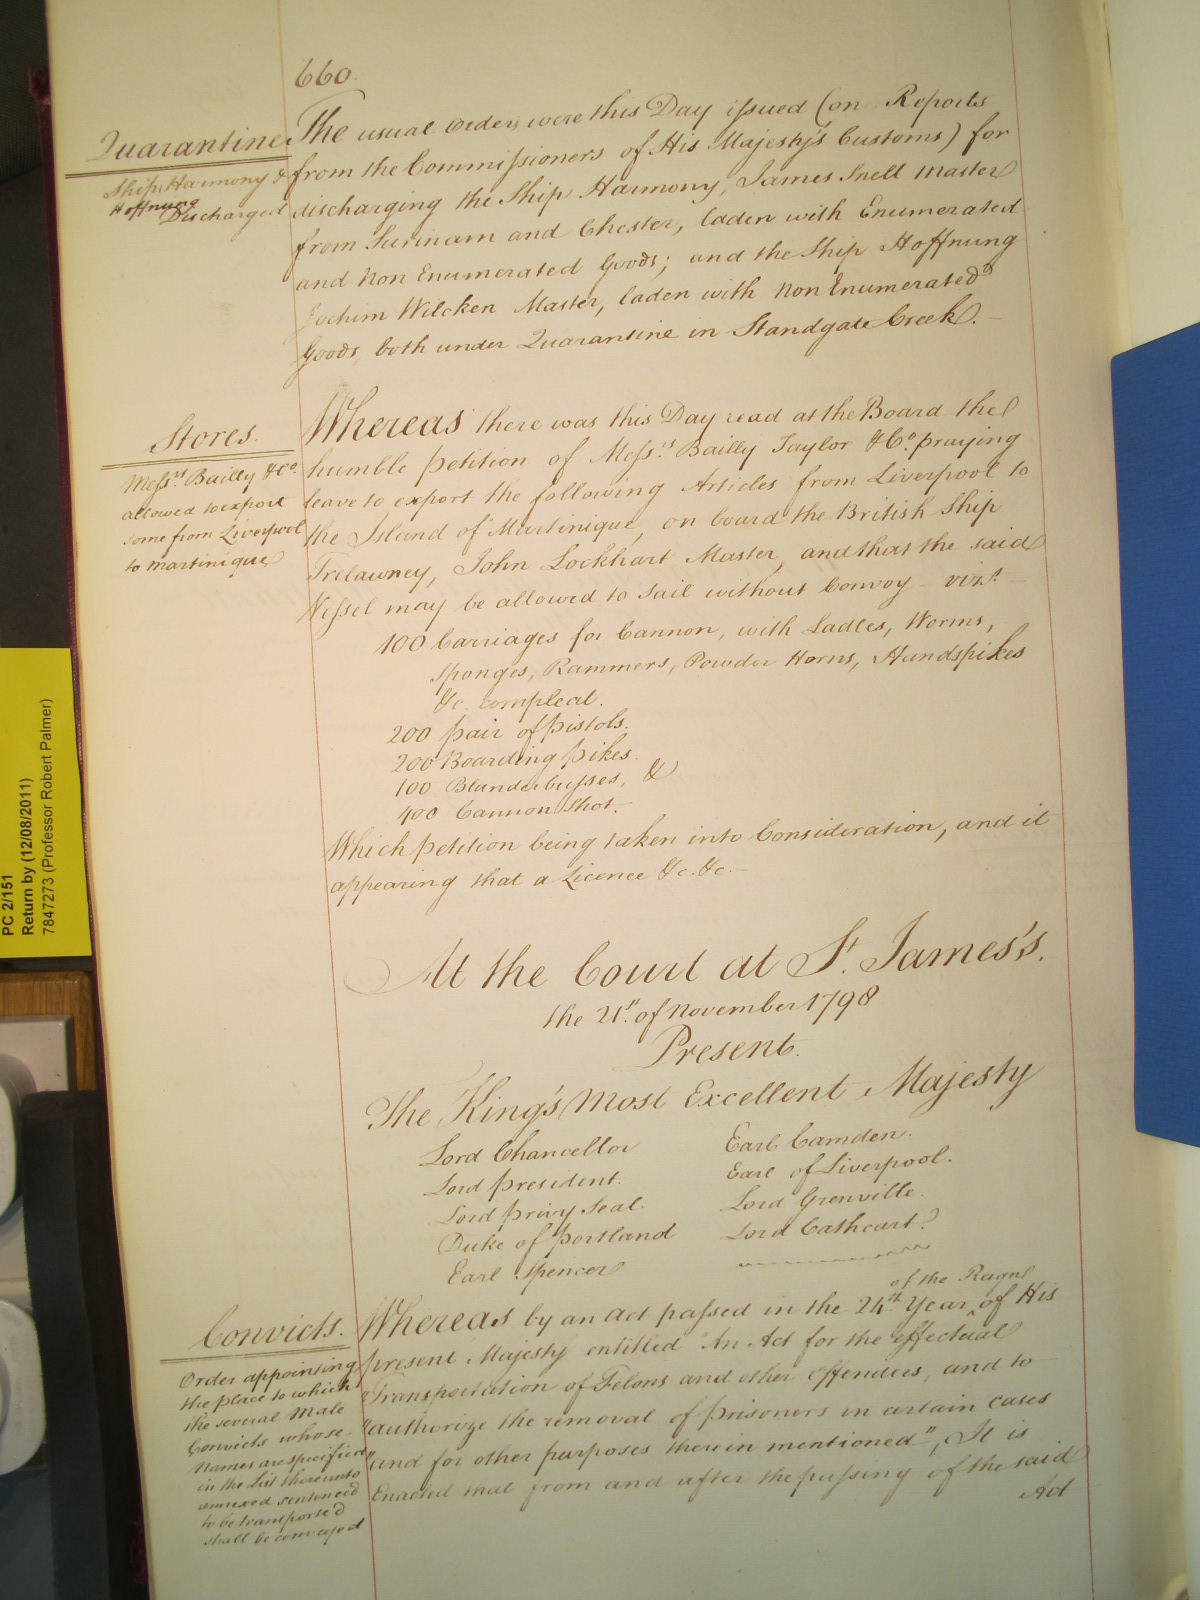 660.
Quarantine
Ship Harmony &
Hoffnung
Discharged
The usual Orders were this Day issued (on Reports
from the Commissioners of His Majesty's Customs) for
discharging the Ship Harmony, James Snell Master
from Surinam and Chester, laden with Enumerated
and Non Enumerated Goods; and the Ship Hoffnung
Jochim Wilcken Master, laden with Non Enumerated
Goods, both under Quarantine in Standgate Creek.
Stores.
Mess.rs Bailly & Co.
allowed to export
some from Liverpool
to Martinique
Whereas there was this Day read at the Board the
humble petition of Mess.rs Bailly Taylor & Co. praying
leave to export the following Articles from Liverpool to
the Island of Martinique, on board the British Ship
Trelawney, John Lockhart Master, and that the said
Vessel may be allowed to sail without Convoy - vizt.
100 Carriages for Cannon, with Ladles, Worms,
Sponges, Rammers, Powder Horns, Handspikes
&c. compleat.
200 pair of pistols.
200 Boarding pikes.
100 Blunderbusses, &
400 Cannon Shot.
Which petition being taken into Consideration, and it
appearing that a Licence &c. &c.
At the Court at St. James's.
the 21st. of November 1798
Present.
The King's Most Excellent Majesty
Lord Chancellor Earl Camden.
Lord president. Earl of Liverpool.
Lord privy Seal. Lord Grenville.
Duke of portland Lord Cathcart?
Earl Spencer
Convicts.
Order appointing
the place to which
the several Male
Convicts whose
Names are specified
in the List thereunto
annexed sentenced
to be transported
shall be conveyed
of the Reign
Whereas by an Act passed in the 24th. Year, of His
present Majesty entitled "An Act for the effectual
"Transportation of Felons and other Offenders, and to
"authorize the removal of prisoners in certain cases
"and for other purposes therein mentioned", It is
Enacted that from and after the passing of the said
Act
PC 2/151
Return by (12/08/2011)
7847273 (Professor Robert Palmer)